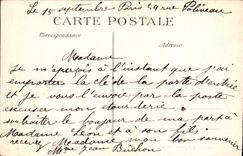 Le 15 septembre Paris 24 rue Polineau
CARTE POSTALE
Correspondance
Adresse
Madame
je m'aperçois à l'instant que j'ai
emporter la clé de la porte d'entrée
et je vous l'envoie par la poste
excuser mon étourderie
souhaiter le bonjour de ma part à
Madame Léon et à son fils
recevez Madame mon bon souvenir
Mme Jean Buchon